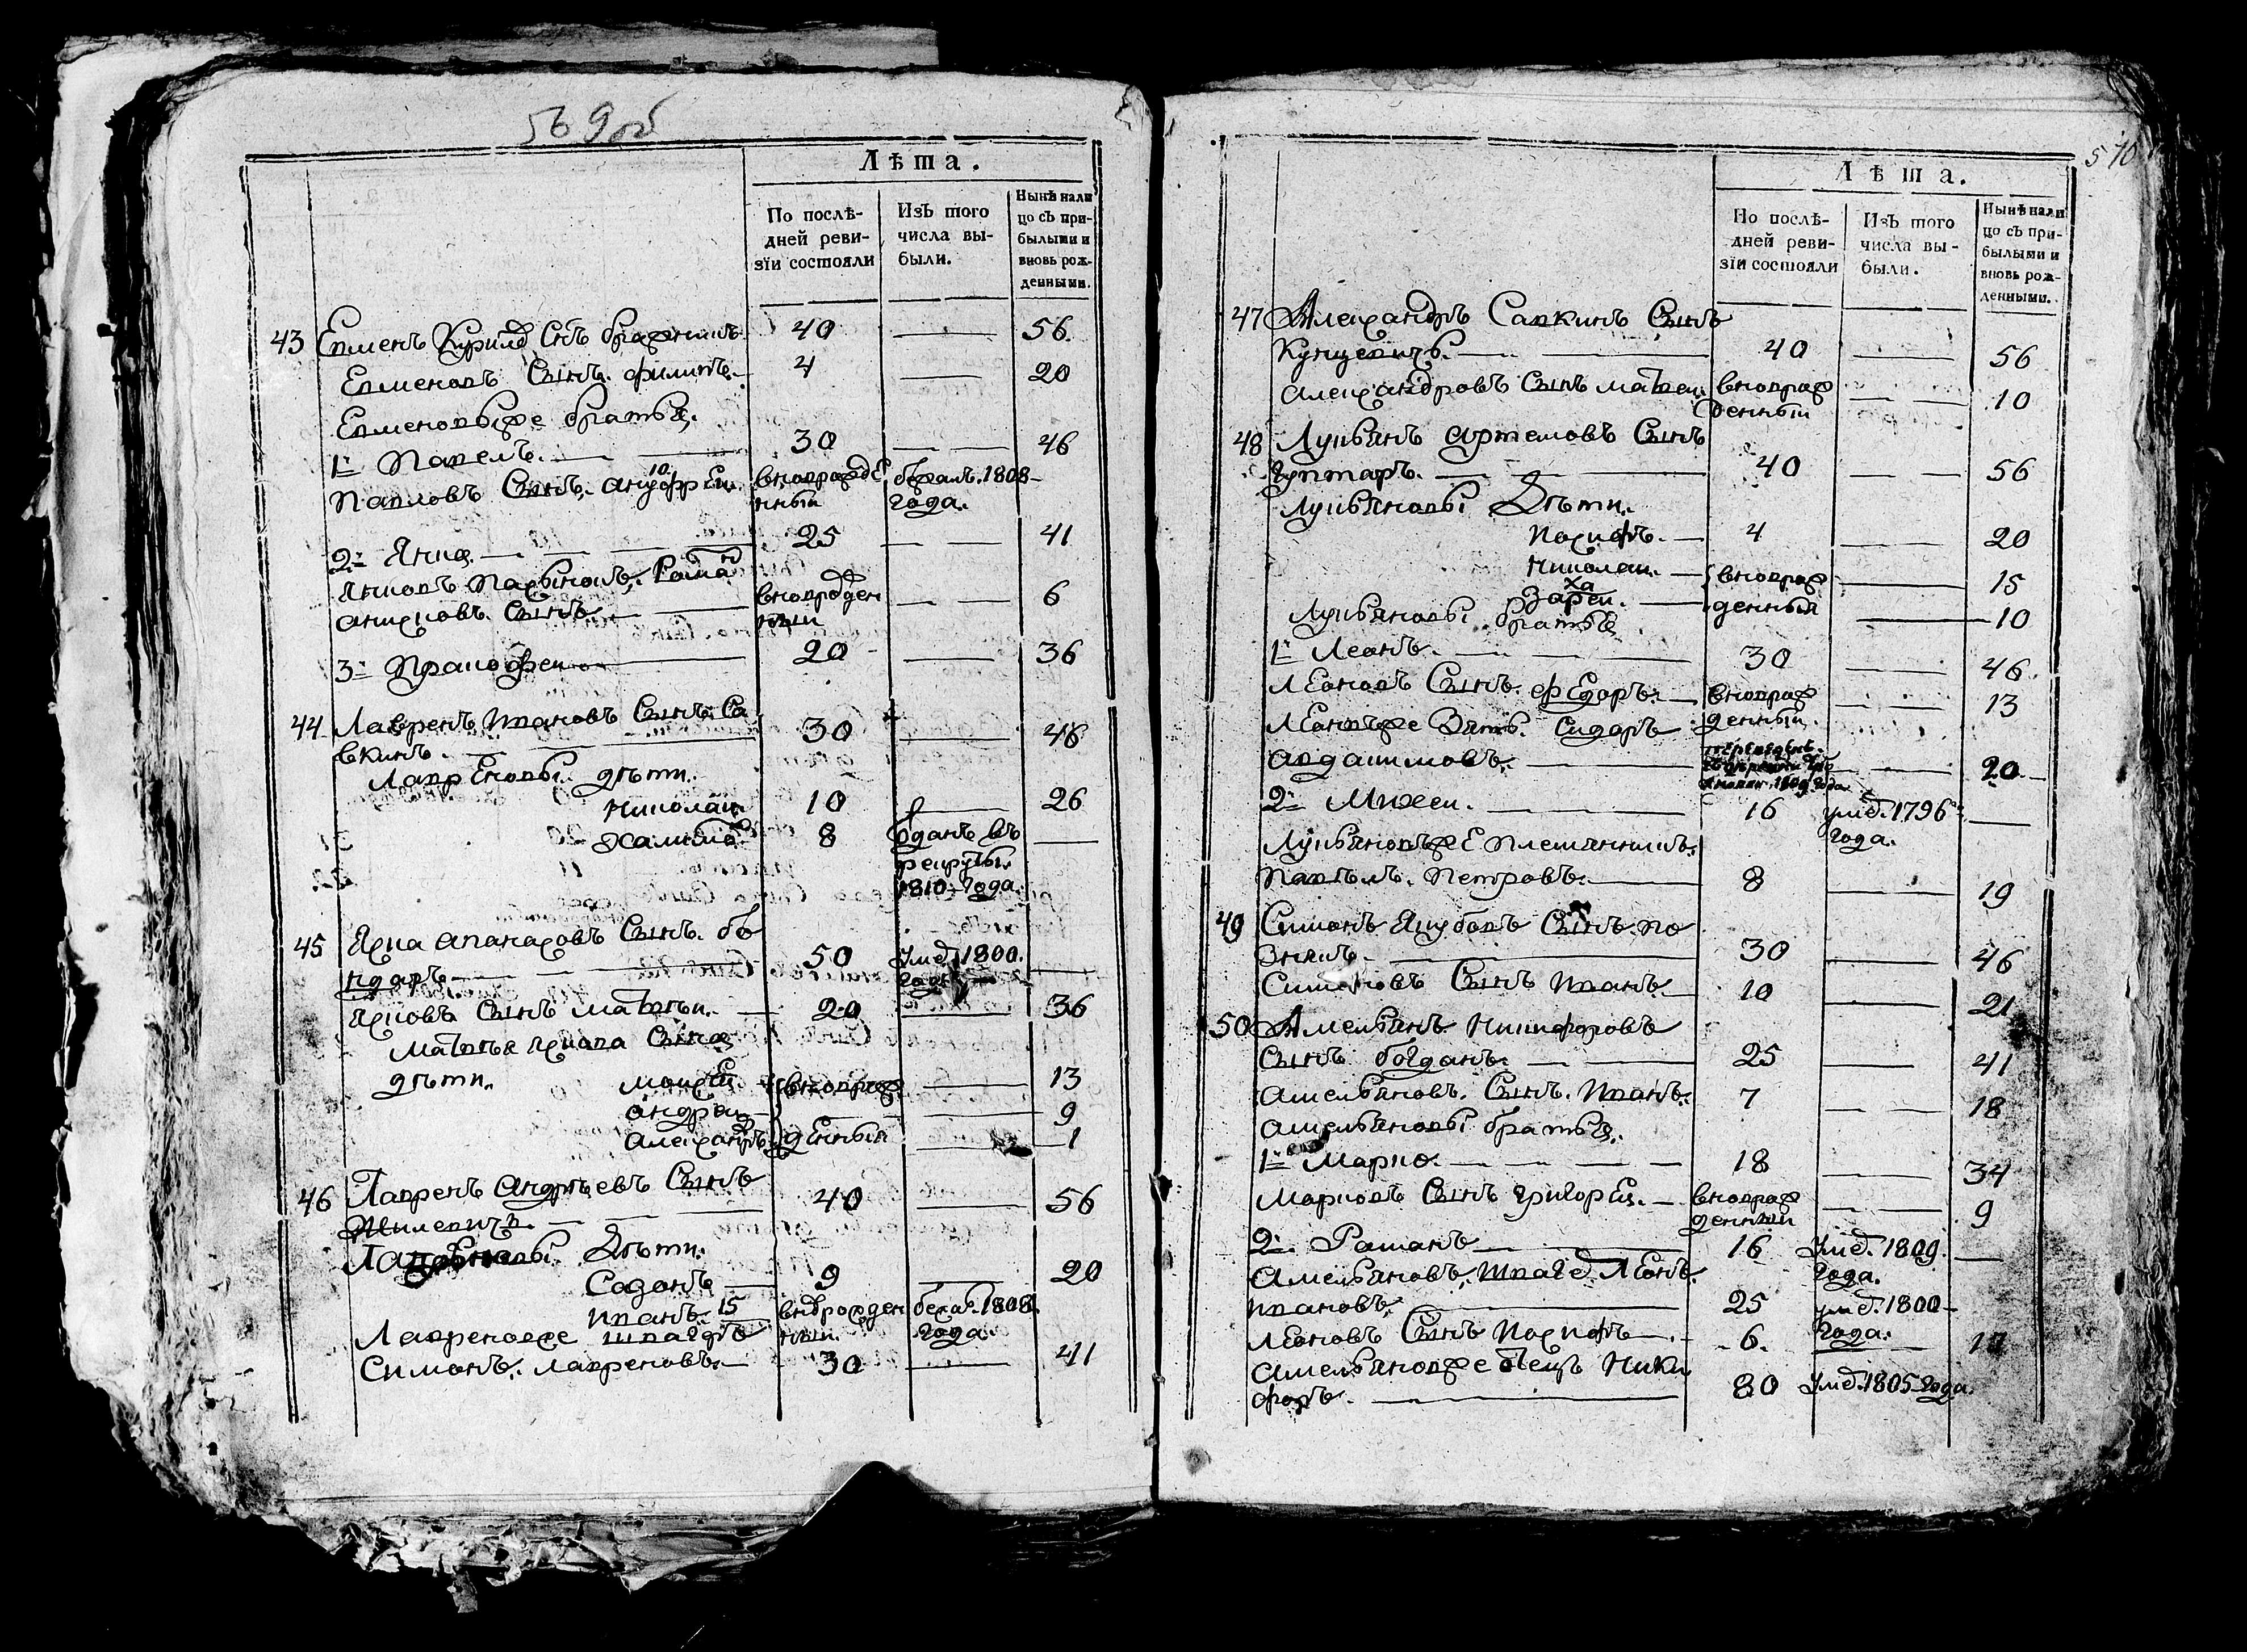 569об
Лѣта.
По послѣ-
дней реви-
зїи состояли
Изъ того
числа вы-
были.
Нынѣ нали
цо съ при-
былыми и
вновь рож-
денными.
43 Ерменъ Кирилов Снъ 40 — 56.
Ерменовъ Сынъ филипъ. 4 — 20
Ерменовы же братья.
1й Павелъ. — 30 — 46
Павловъ Сынъ. ануфреи 10. вноврожде бежалъ. 1808
нныи года.
2й Янка — 25 — 41
Янковъ пасынокъ. Романъ
Сынъ. — вноврожден — 6
ныи
3й Пракофеи — 20 — 36
44 Лавренъ Ивановъ Сынъ Са
вкинъ. — 30 — 46
Лавреновы дѣти.
Николаи 10 — 26
8 Отданъ въ —
рекруты.
1810 года.
45 апанасовъ Сынъ. бо
ндаръ — 50 Умер. 1800. —
года
Сынъ матвѣи. — 20 — 36
матвѣя Сына
дѣти. моисеи вноврож — 13
андреи — — 9
александръ денныя — 1
46 Лавренъ Андрѣевъ Сынъ
Жилевичъ. — 40 — 56
Лавреновы Дѣти.
9 — 20
иванъ. 15 вноврожден бежа. 1808.
ныи. года.
Лавренов же швагеръ
Симонъ. лавреновъ. — 30 — 41
570
Лѣта.
По послѣ-
дней реви-
зїи состояли
Изъ того
числа вы-
были.
Нынѣ нали
цо съ при-
былыми и
вновь рож-
денными.
47 Александръ Савкинъ Сынъ
Кунцевичъ. — 40 — 56
александровъ Сынъ матвеи. вноврож — 10
денныи
48 Лукьянъ артемовъ Сынъ
гунтаръ. — 40 — 56
Лукьяновы Дѣти.
Иосифъ. — 4 — 20
Николаи. — вноврож — 15
Захареи. — денныя — 10
Лукьяновы братья
1й Леонъ. — 30 — 46.
Леоновъ Сынъ. федоръ. — вноврож — 13
Леоновъ же Зять. Сидаръ денныи.
авдакимовъ. — 1809 года — 20
2й Михеи. — 16 умер. 1796 —
Лукьяновъ же племянникъ. года.
Павелъ. Петровъ. — 8 — 19
49 Симонъ Якубовъ Сынъ. по
знякъ. — 30 — 46
Симоновъ Сынъ Иванъ — 10 — 21
50 Амельянъ Никифоровъ
Сынъ богданъ. — 25 — 41
амельяновъ. Сынъ. Иванъ. 7 — 18
амельяновы братья.
1й Марко. — 18 — 34
Марковъ Сынъ григореи. — вноврож — 9
денныи
2й Раманъ — 16 Умер. 1809. —
Амельяновъ. швагер. Леонъ. года.
ивановъ. — 25 умер. 1800
Леоновъ Сынъ Иосифъ — 6. года. — 17
амельянов же отецъ Ники
форъ. — 80 Умер. 1805 года.